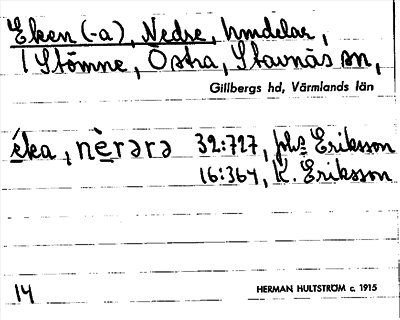 Eken (-a), Nedre, hmdelar,
i Stömne, Östra, Stavnäs sn,
Gillbergs hd, Värmlands län
éka, nèrərə 32:727, Erikson
16:364, K. Erikson
14
HERMAN HULTSTRÖM c. 1915